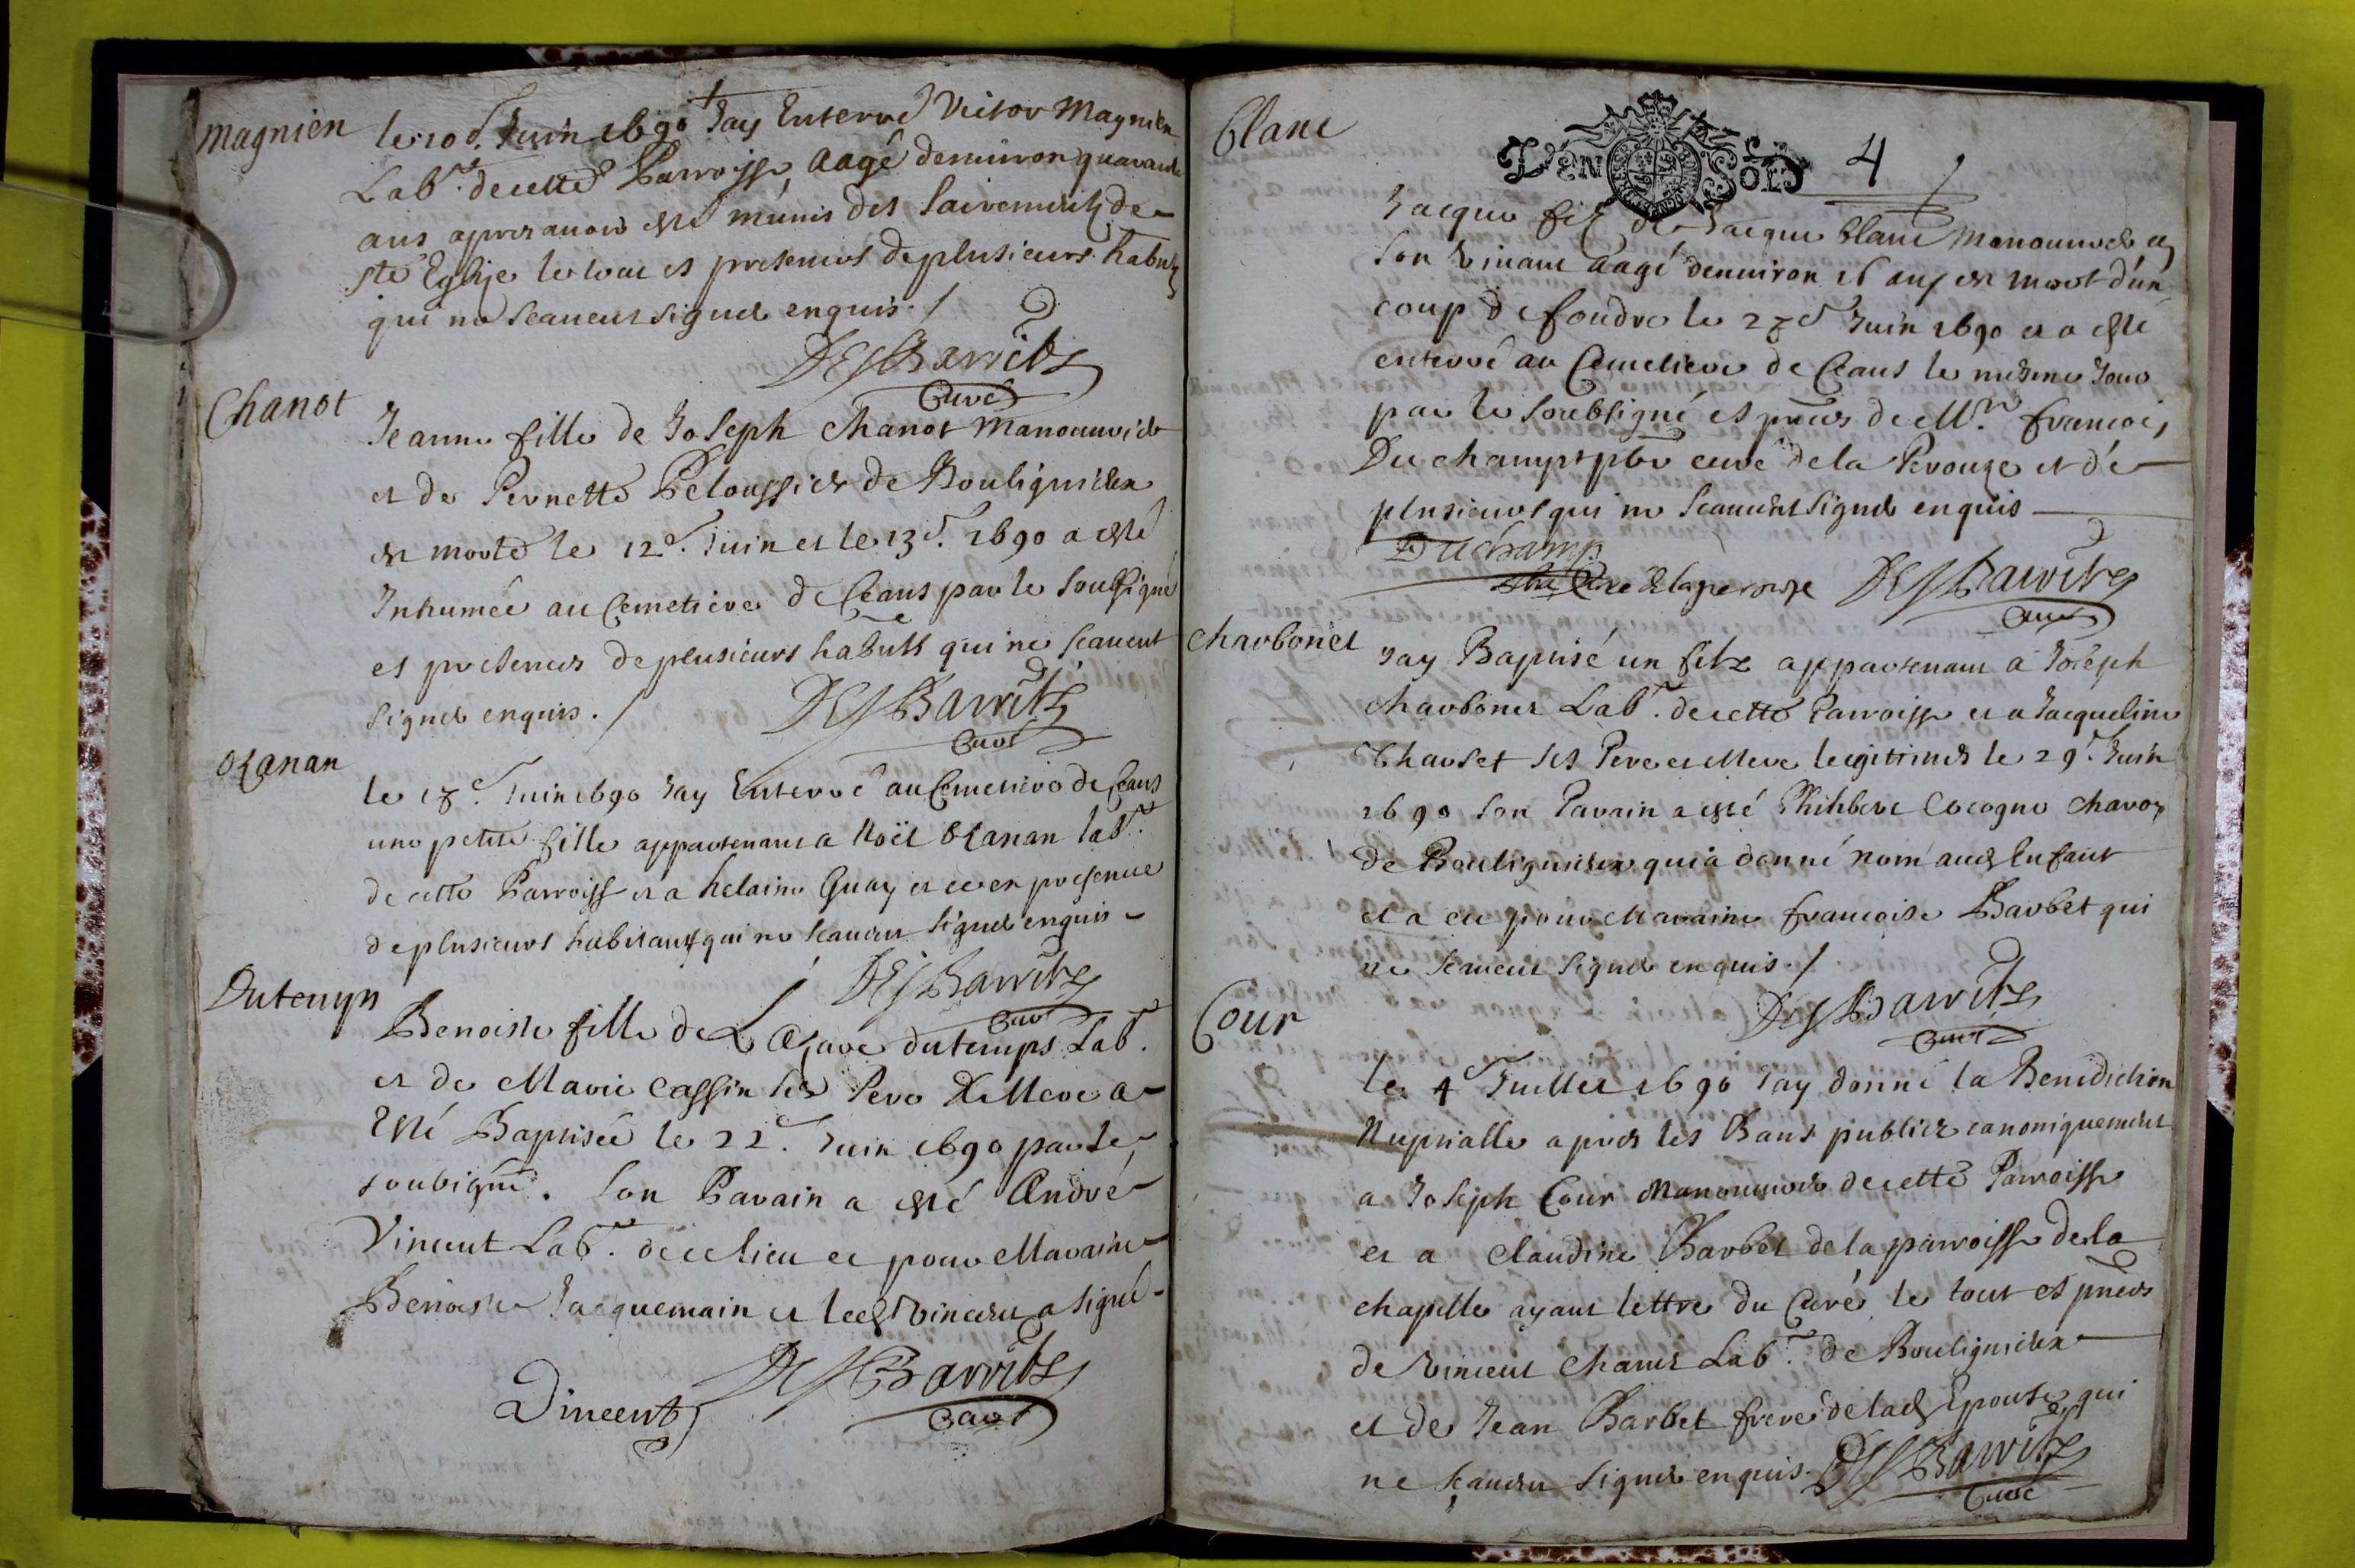 Magnien
le 10e. Juin 1690 Jay Enterré Victor Magnien
Labr. de cette Parroisse, aagé denuiron quarante
ans apres auoir esté munis des Sacrements de
ste Eglise le tout es presences de plusieurs habnts
qui ne scauent signer enquis./
DesBarrits
Curé
Chanot
Jeanne fille de Joseph Chanot manouurier
et de Pernette Peloussier de Bouligneux
est morte le 12e. Juin et le 13e. 1690 a esté
Inhumée au Cemetiere de Ceans par le soubsigné
et presences de plusieurs habnts qui ne scauent
signer enquis./
DesBarrits
Curé
Manan
le 17e. Juin 1690 Jay Enterré au Cemetiere de Ceans
une petite fille appartenant a Noël Manan labr.
de cette Parroisse et a helaine Guay et ce en presence
de plusieurs habitants qui ne scauent signer enquis
DesBarrits
Curé
Dutemps
Benoiste fille de Lazare dutemps Labr.
et de Marie Cassin ses Pere & Mere a
Esté Baptisée le 22e. Juin 1690 par le
soubigné. Son Parain a esté André
Vincent Labr. de ce lieu et pour Maraine
Benoiste Jacquemain et led Vincent a signé
Vincent
DesBarrits
Curé
Blanc
DEN SOLS
4
Jacque filz de Jacque Blanc manouurier en
son Viuant aagé denuiron 26 ans est mort d'un
coup de foudre le 27e Juin 1690 et a esté
enterré au Cemetiere de Ceans le mesme Jour
par le soubsigné es pnces de Mre. francois
Duchamps pbre curé de la Perouze et de
plusieurs qui ne scauent signer enquis
Duchamp
curé de la perouse
DesBarrits
Curé
Charbonet
Jay Baptisé un filz appartenant a Joseph
Charbonet Labr. de cette Parroisse et a Jacqueline
Charlet ses Pere et Mere legitimes le 29e. Juin
1690 son Parain a esté Philibert Cocogne charon
de Bouligneux qui a donné nom aud Enfant
et a eu pour Maraine francoise Barbet qui
ne scauent signer enquis./
DesBarrits
Curé
Cour
le 4e Juillet 1690 Jay donné la Benediction
Nuptialle apres les Bans publiez canoniquement
a Joseph Cour Manouurier de cette Parroisse
et a Claudine Barbet de la parroisse de la
chapelle ayant lettre du Curé le tout es pnces
de Vincent Chanet Labr. de Bouligneux
et de Jean Barbet frere de lad Epouse qui
ne scauent signer enquis.
DesBarrits
Curé